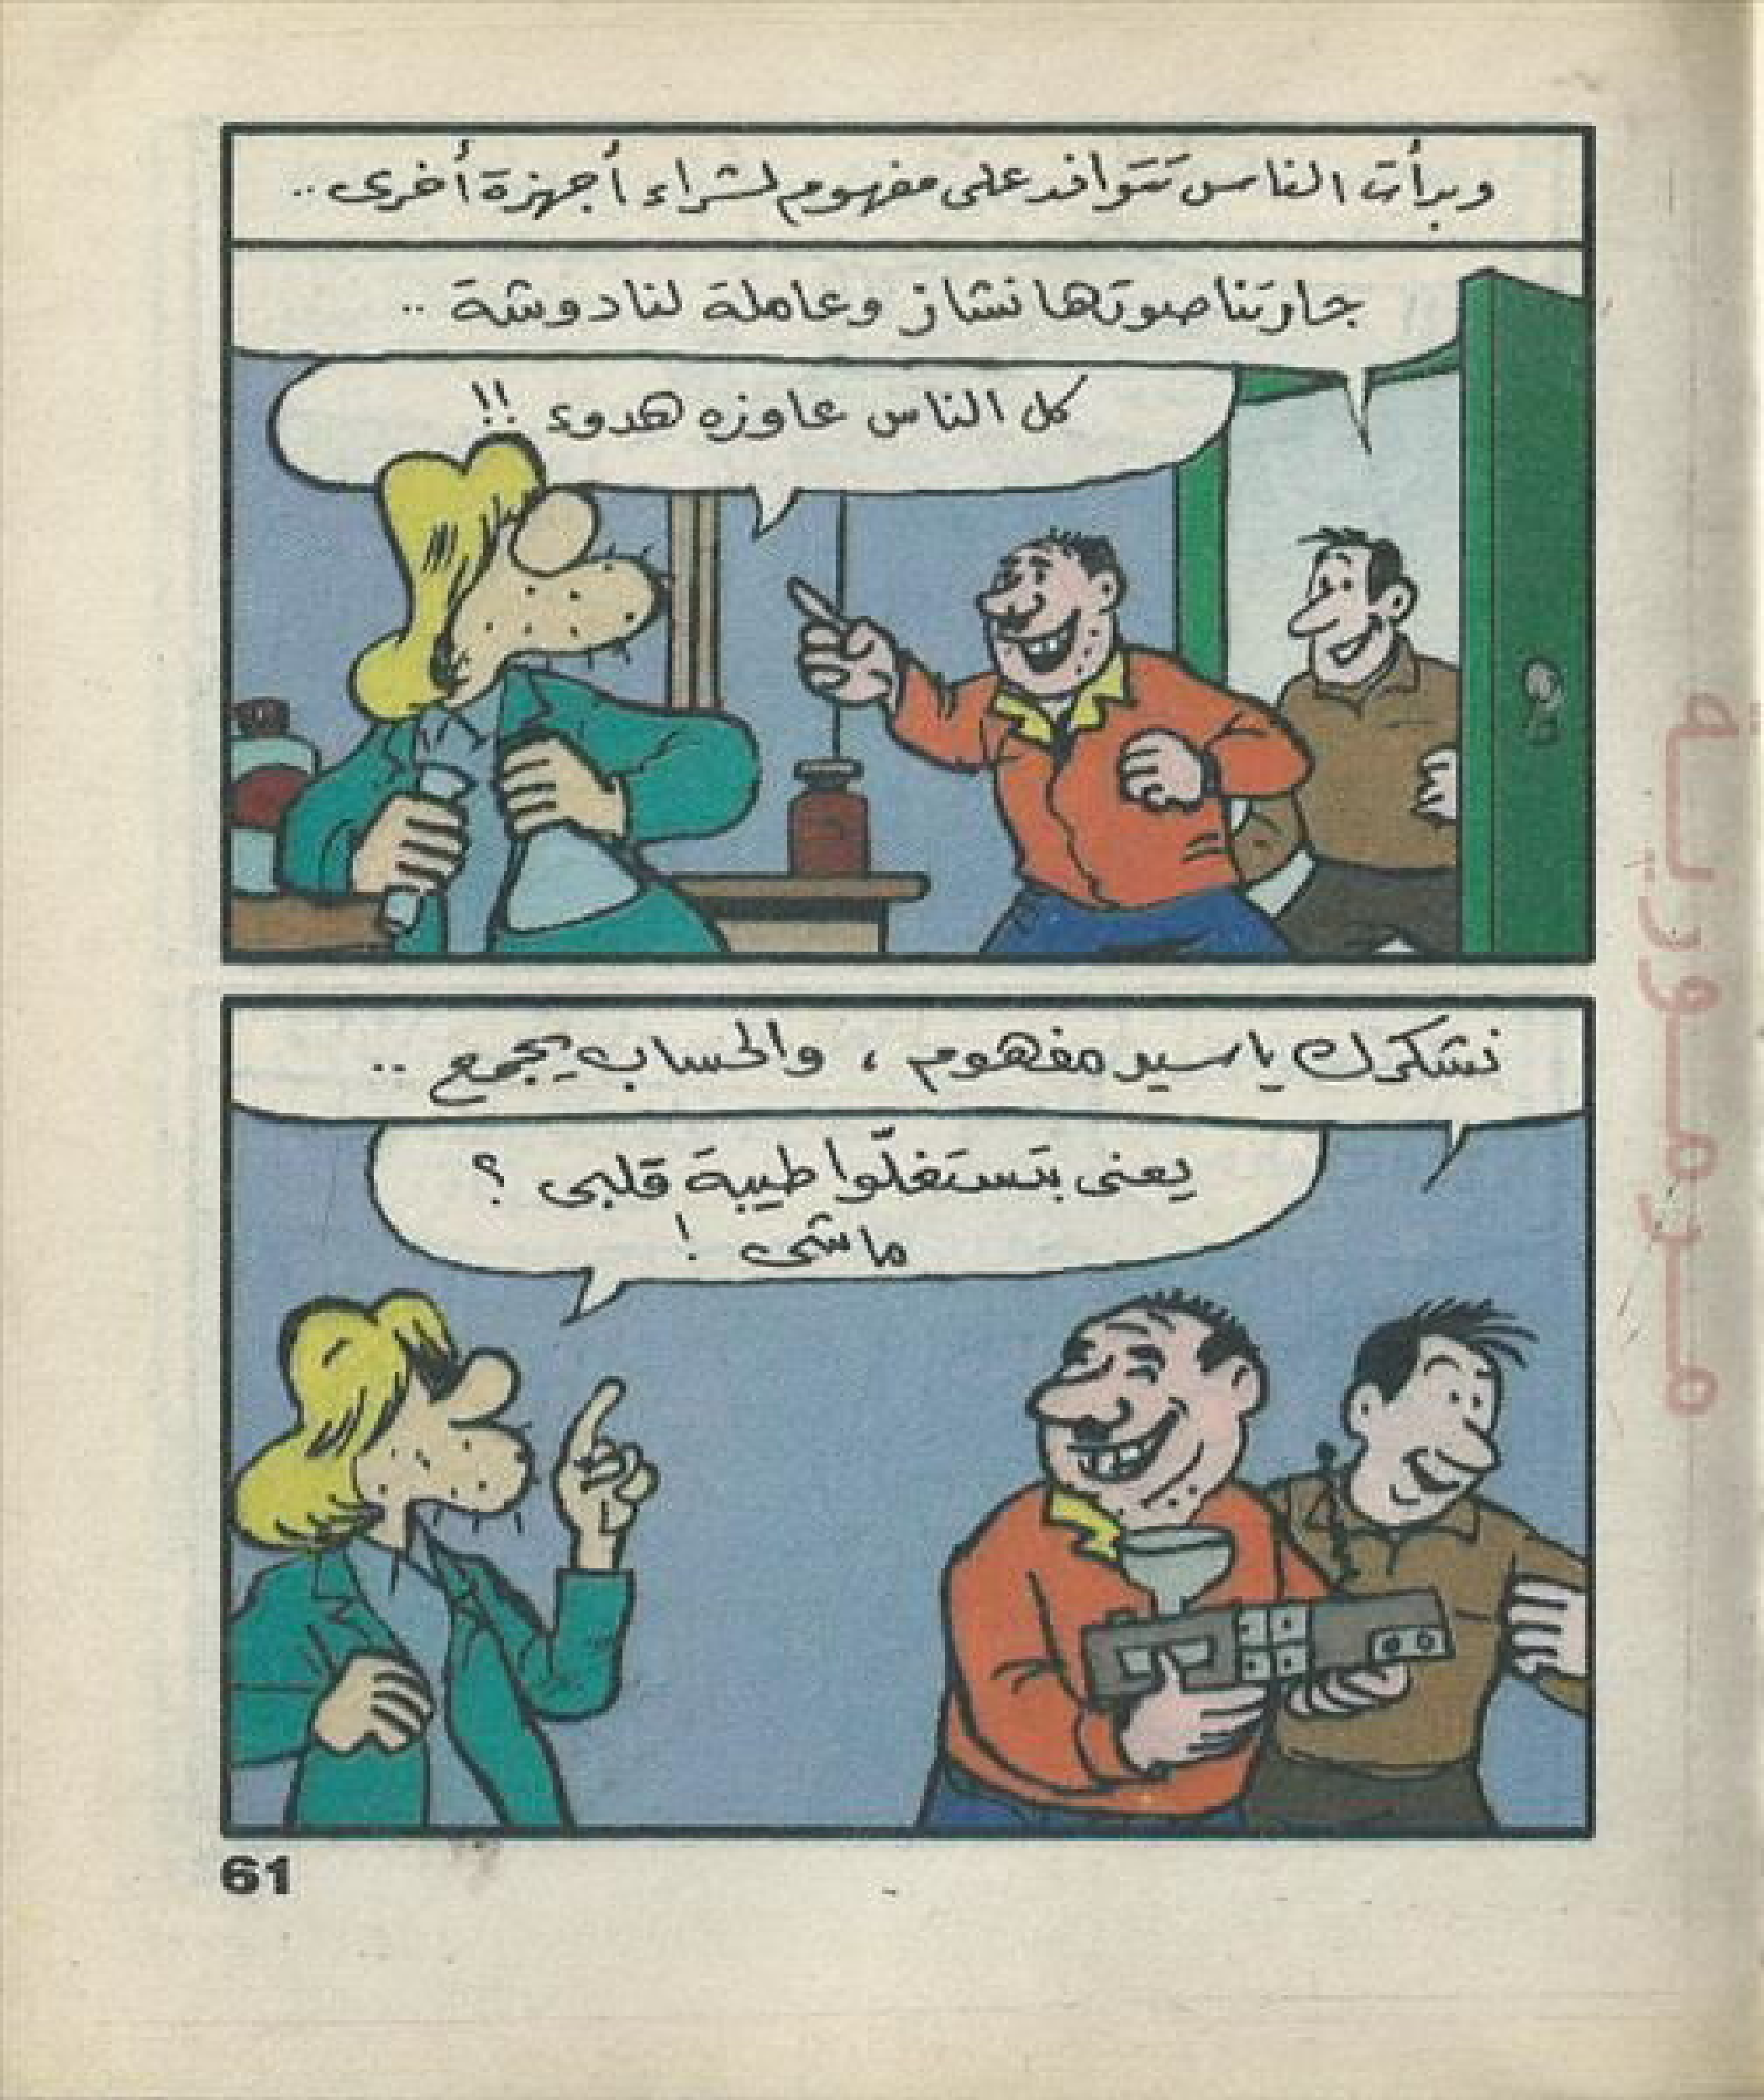 وبدأت الناس تتوافد على مفهوم لشراء أجهزة أخرى ..
جارتنا صوتها نشاز وعاملة لنا دوشة ..
كل الناس عاوزه هدوء !!
نشكرك ياسيد مفهوم ، والحساب يجمع ..
يعنى بتستغلّوا طيبة قلبى ؟
ماشى !
61